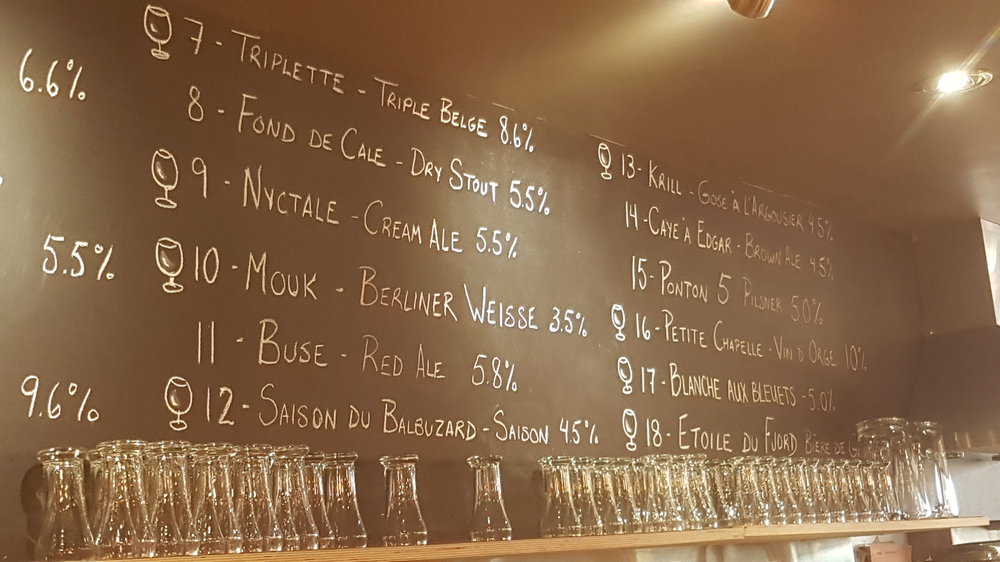 6.6%
5.5%
9.6%
7 - TRIPLETTE - TRIPLE BELGE 8.6%
8 - FOND DE CALE - DRY STOUT 5.5%
9 - NYCTALE - CREAM ALE 5.5%
10 - MOUK - BERLINER WEISSE 3.5%
11 - BUSE - RED ALE 5.8%
12 - SAISON DU BALBUZARD - SAISON 4.5%
13 - KRILL - GOSE À L'ARGOUSIER 4.5%
14 - CAYE À EDGAR - BROWN ALE 4.5%
15 - PONTON 5 PILSNER 5.0%
16 - PETITE CHAPELLE - VIN D'ORGE 10%
17 - BLANCHE AUX BLEUETS - 5.0%
18 - ETOILE DU FJORD BIÈRE DE